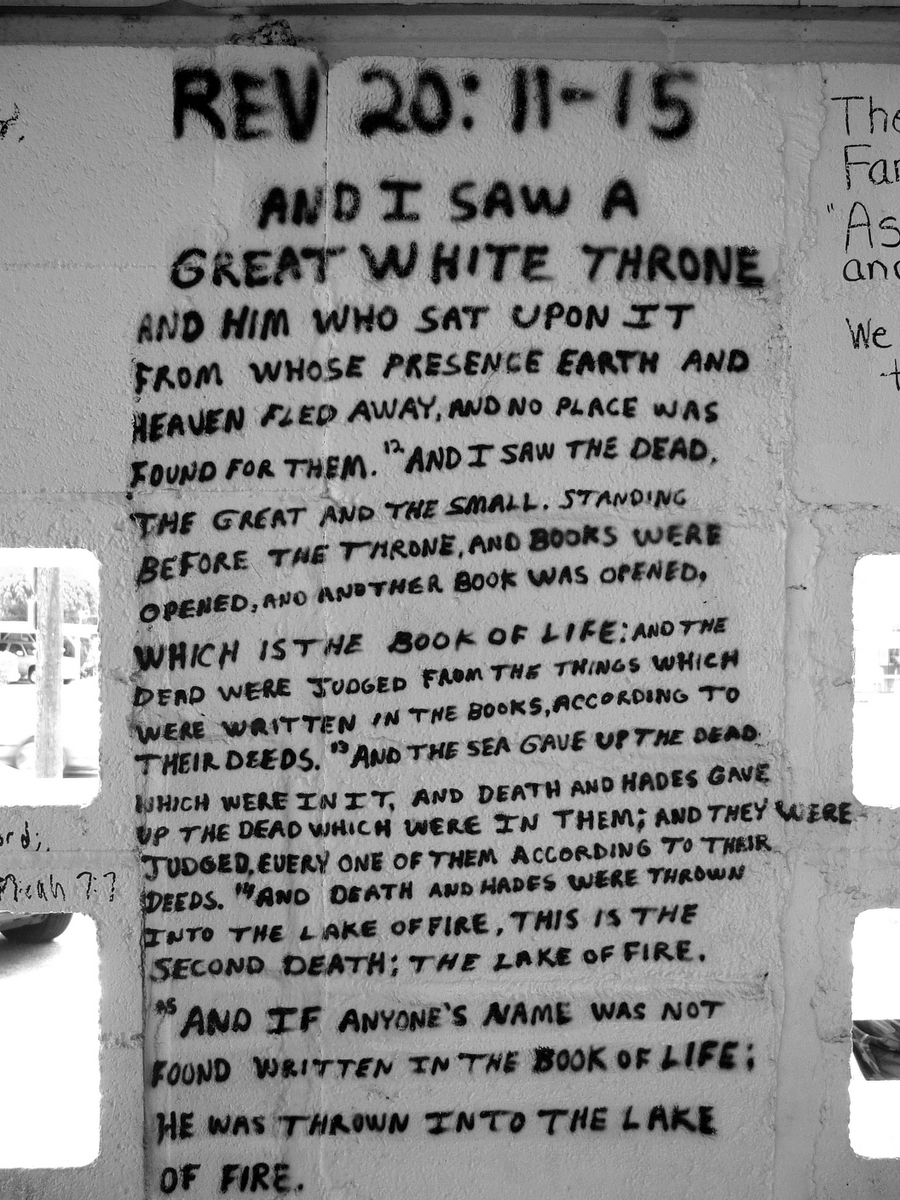 REV 20: 11-15
AND I SAW A
GREAT WHITE THRONE
AND HIM WHO SAT UPON IT
FROM WHOSE PRESENCE EARTH AND
HEAVEN FLED AWAY, AND NO PLACE WAS
FOUND FOR THEM. 12 AND I SAW THE DEAD,
THE GREAT AND THE SMALL. STANDING
BEFORE THE THRONE, AND BOOKS WERE
OPENED, AND ANOTHER BOOK WAS OPENED,
WHICH IS THE BOOK OF LIFE: AND THE
DEAD WERE JUDGED FROM THE THINGS WHICH
WERE WRITTEN IN THE BOOKS, ACCORDING TO
THEIR DEEDS. 13 AND THE SEA GAVE UP THE DEAD
WHICH WERE IN IT, AND DEATH AND HADES GAVE
UP THE DEAD WHICH WERE IN THEM; AND THEY WERE
JUDGED, EVERY ONE OF THEM ACCORDING TO THEIR
DEEDS. 14 AND DEATH AND HADES WERE THROWN
INTO THE LAKE OF FIRE, THIS IS THE
SECOND DEATH; THE LAKE OF FIRE.
15 AND IF ANYONE'S NAME WAS NOT
FOUND WRITTEN IN THE BOOK OF LIFE;
HE WAS THROWN INTO THE LAKE
OF FIRE.
ord;
Micah 7:7
The
Far
"As
and
We
t